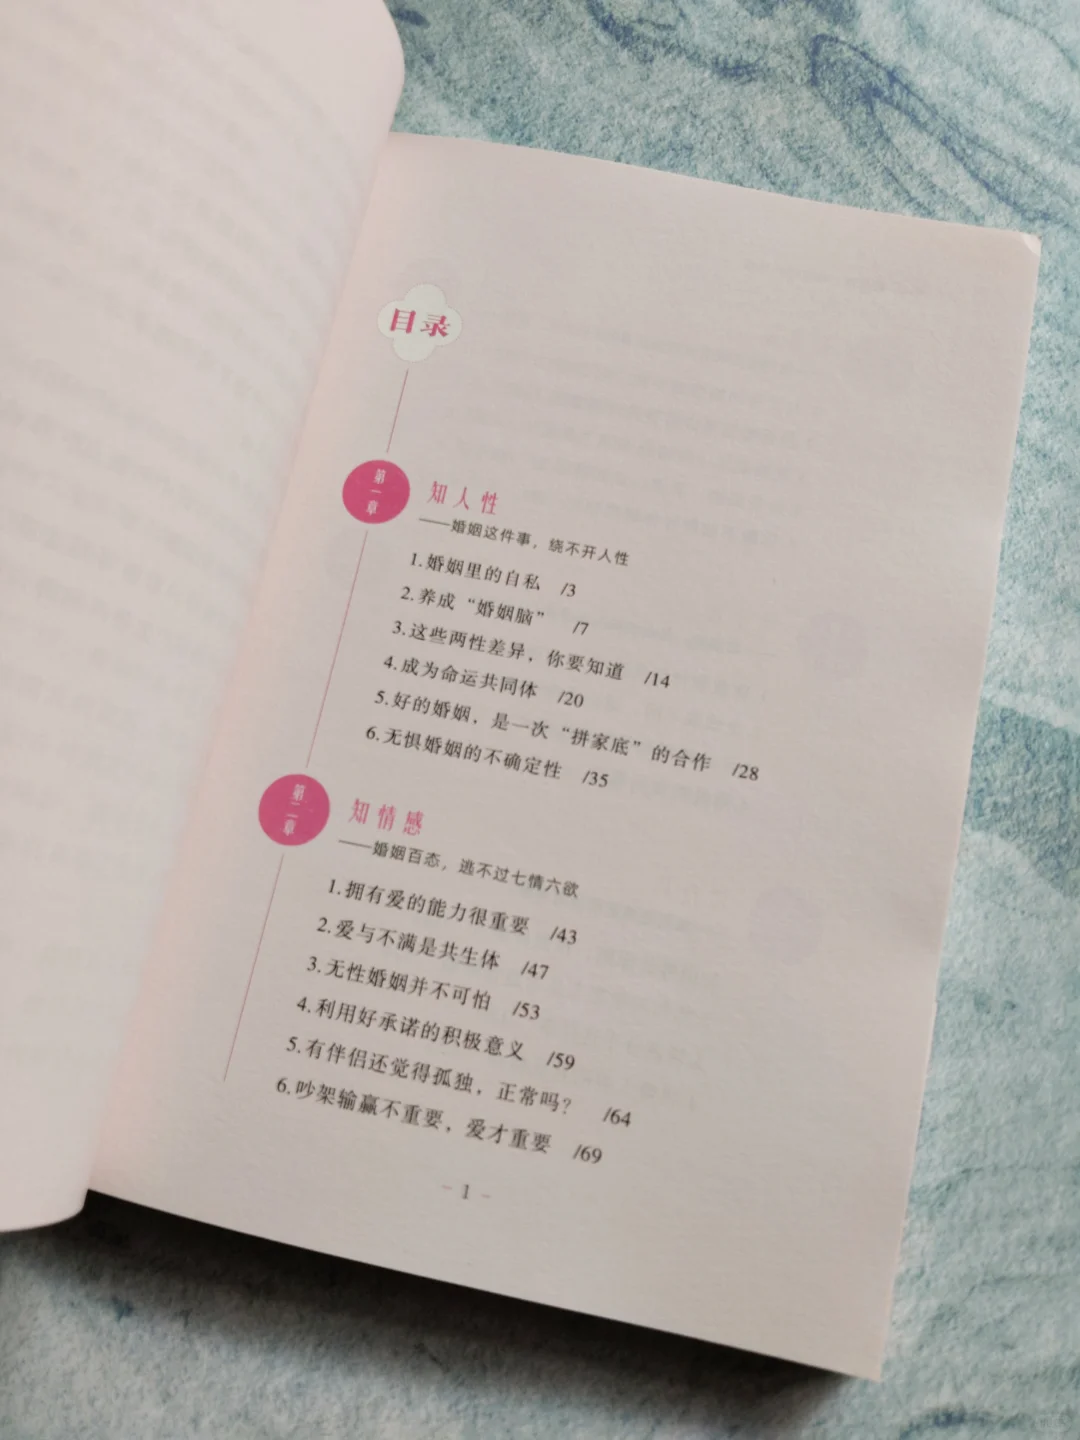 目录
第一章
知人性
——婚姻这件事，绕不开人性
1.婚姻里的自私 /3
2.养成“婚姻脑” /7
3.这些两性差异，你要知道 /14
4.成为命运共同体 /20
5.好的婚姻，是一次“拼家底”的合作 /28
6.无惧婚姻的不确定性 /35
第二章
知情感
——婚姻百态，逃不过七情六欲
1.拥有爱的能力很重要 /43
2.爱与不满是共生体 /47
3.无性婚姻并不可怕 /53
4.利用好承诺的积极意义 /59
5.有伴侣还觉得孤独，正常吗？ /64
6.吵架输赢不重要，爱才重要 /69
- 1 -